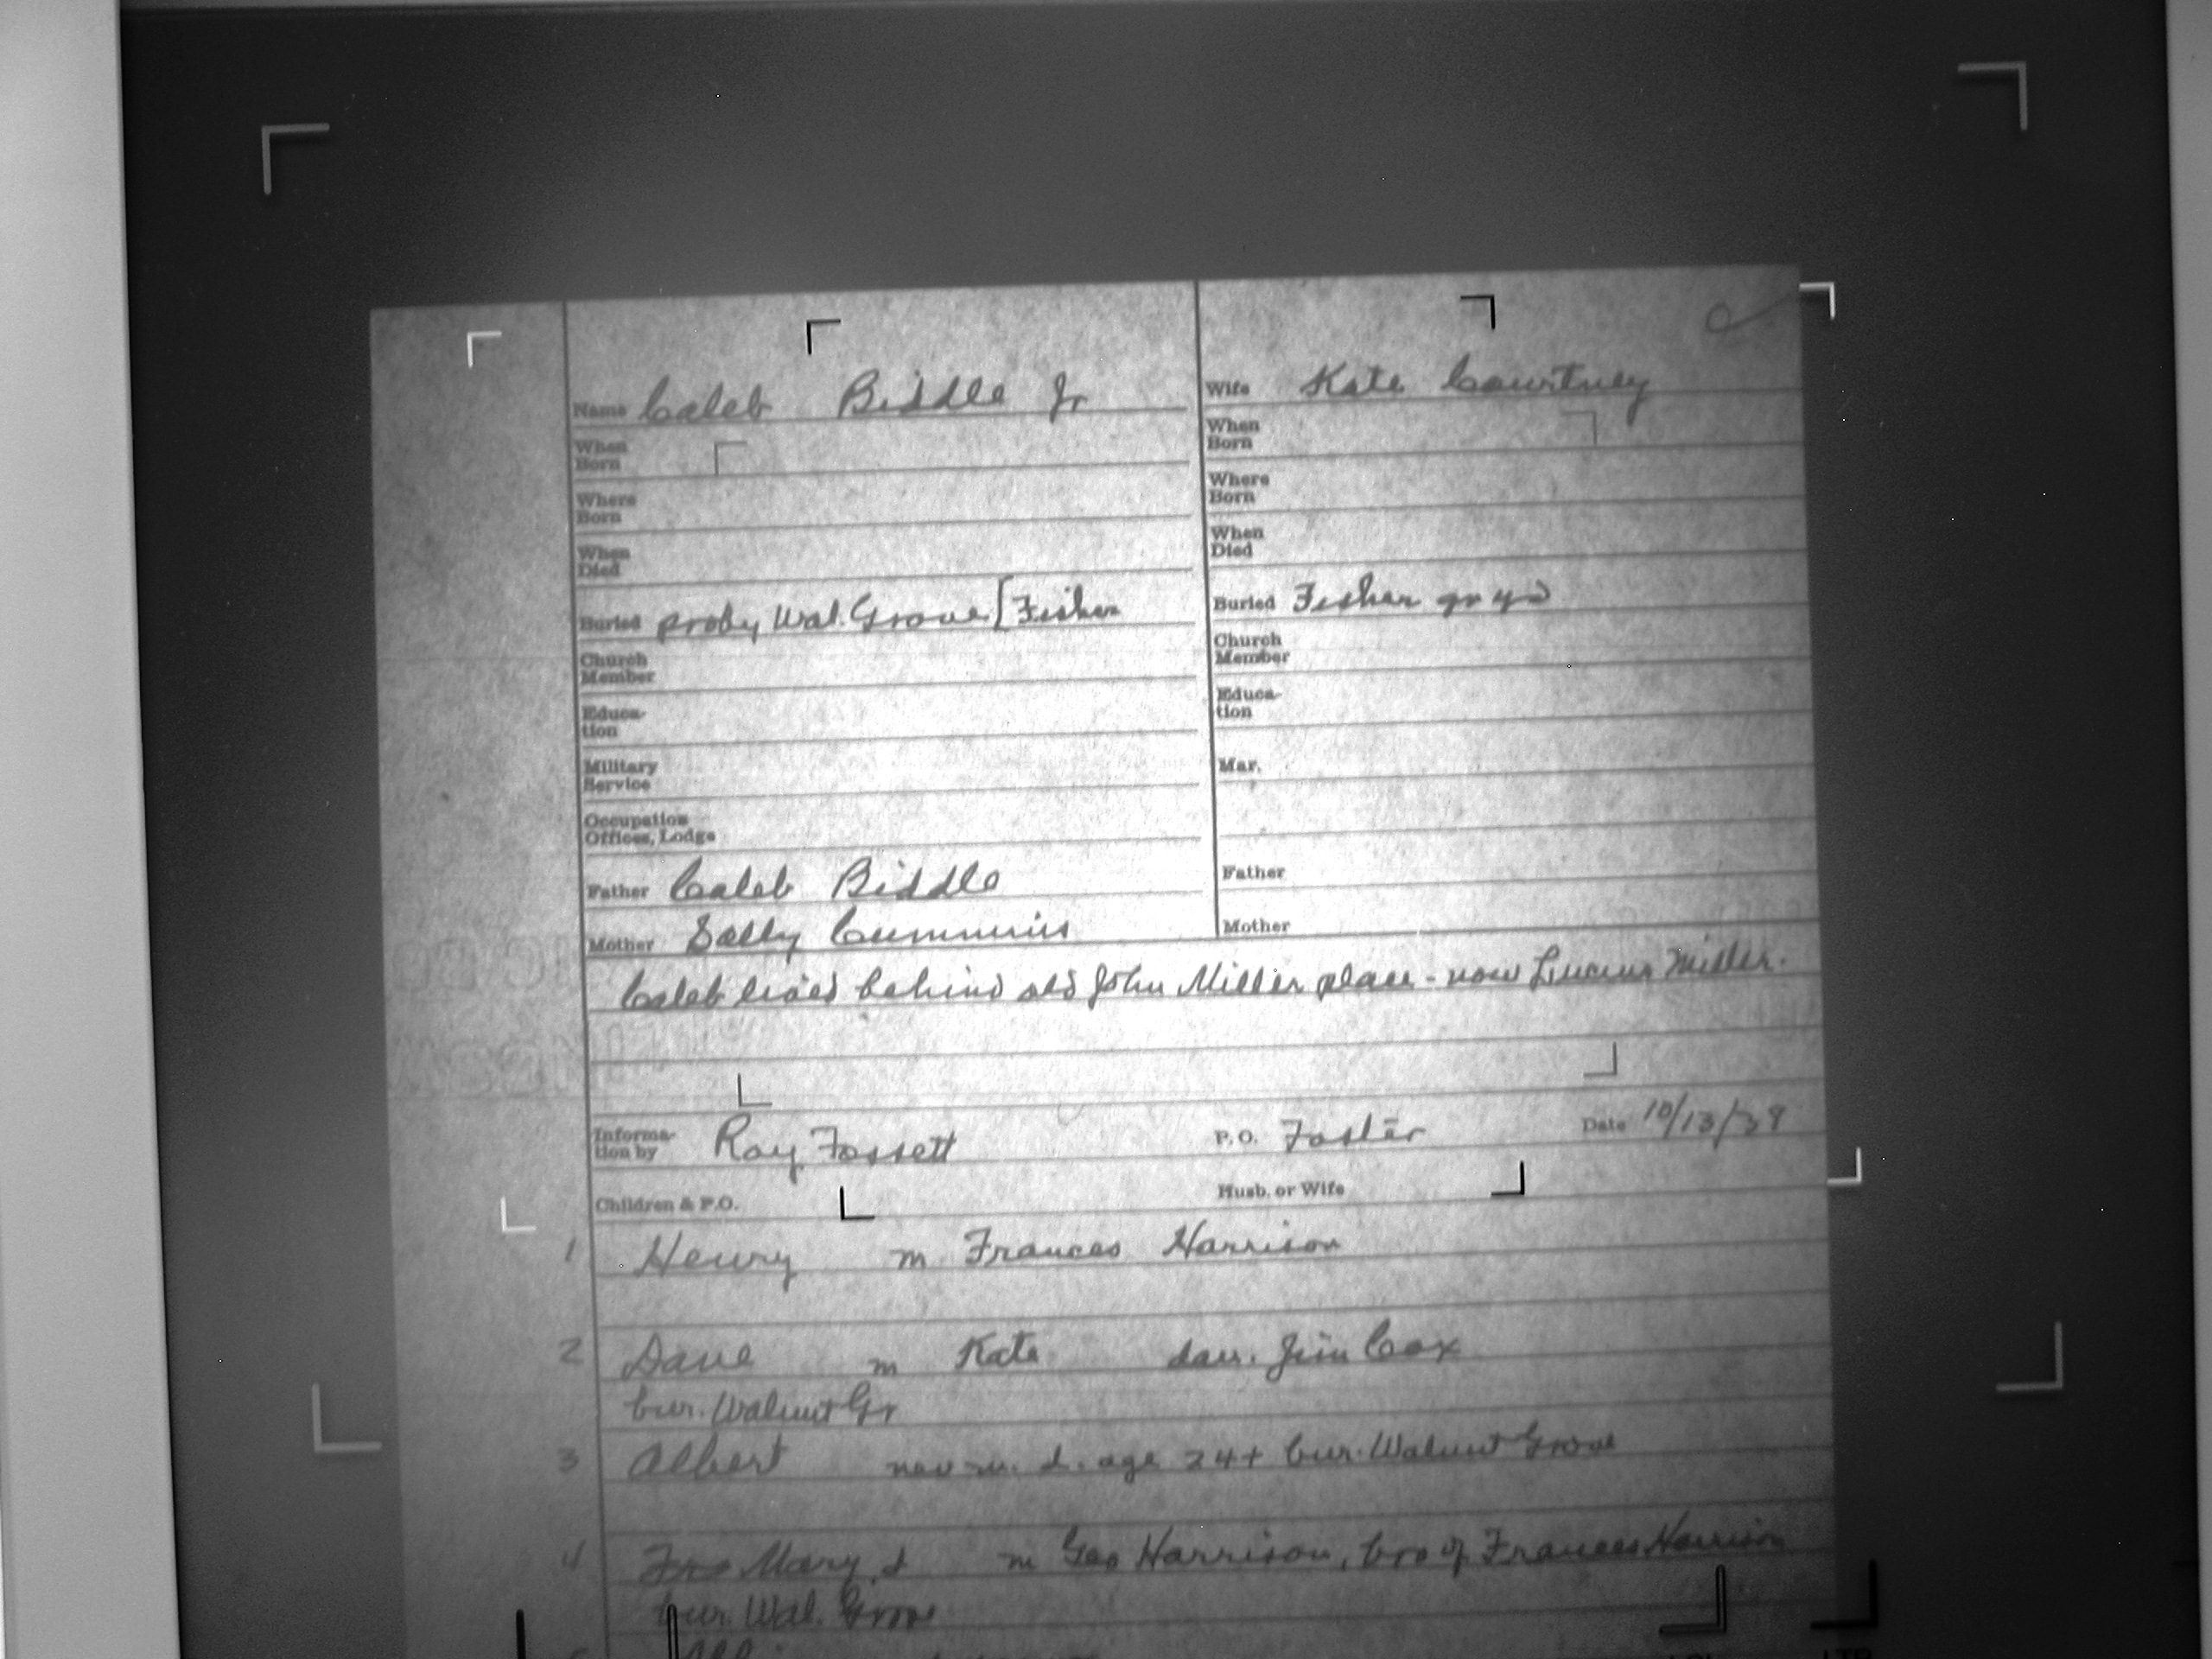 Name Caleb Biddle Jr
Wife Kate Courtney
When Born
When Born
Where Born
Where Born
When Died
When Died
Buried proby Wal. Grove [Fisher
Buried Fisher gr yd
Church Member
Church Member
Educa-
tion
Educa-
tion
Military Service
Mar.
Occupation
Offices, Lodge
Father Caleb Biddle
Father
Mother Sally Cummins
Mother
Caleb lived behind old John Miller place - now Lucius Miller.
Informa-
tion by Ray Fossett P.O. Foster Date 10/13/38
Children & P.O. Husb. or Wife
1 Henry m Frances Harrison
2 Dave m Kate dau. Jim Cox
bur. Walnut Gr
3 Albert nev m. d. age 24+ bur. Walnut Grove
4 Mary d m Geo Harrison, bro of Frances Harrison
bur. Wal. Grove